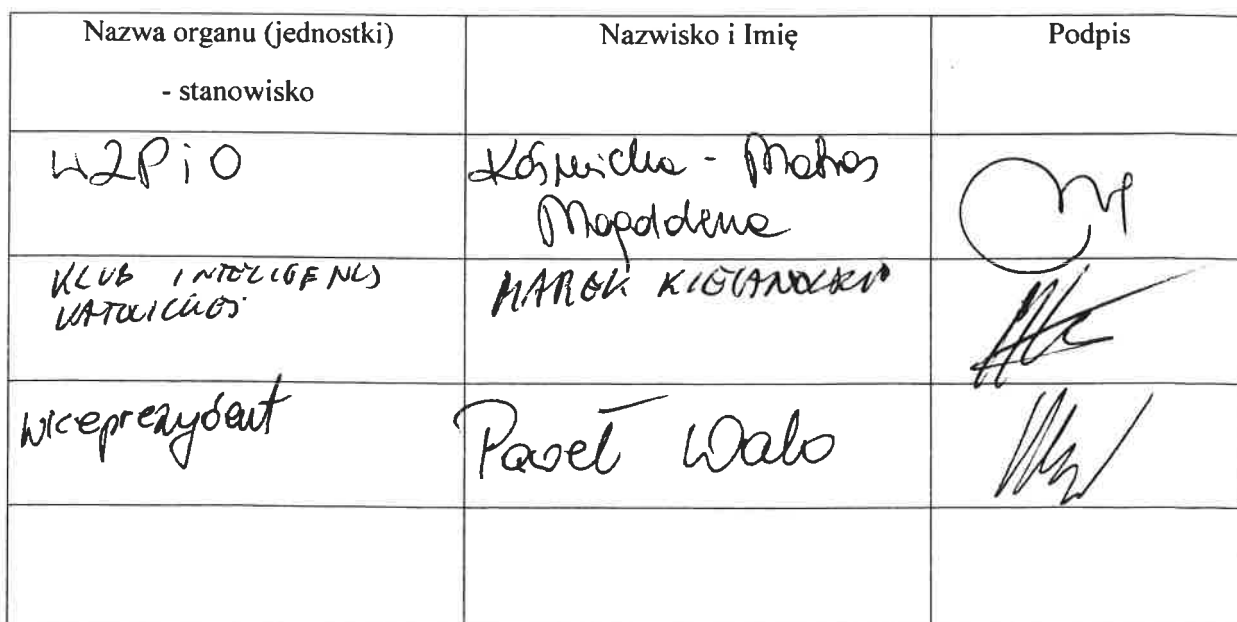 Nazwa organu (jednostki)
- stanowisko
Nazwisko i Imię
Podpis
WZPiO
Kośmicka - Matras
Magdalena
KLUB INTELIGENCJI
KATOLICKIEJ
MAREK
wiceprezydent
Paweł Walo